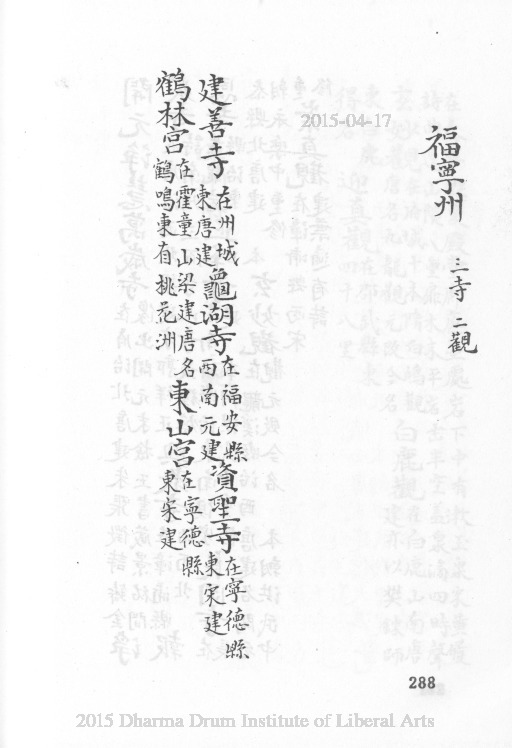 福寧州 三寺 二觀
建善寺 在州城東唐建 龜湖寺 在福安縣西南元建 資聖寺 在寧德縣東宋建
鶴林宮 在霍童山梁建唐名鶴鳴東有桃花洲 東山宮 在寧德縣東宋建
288
2015-04-17
2015 Dharma Drum Institute of Liberal Arts